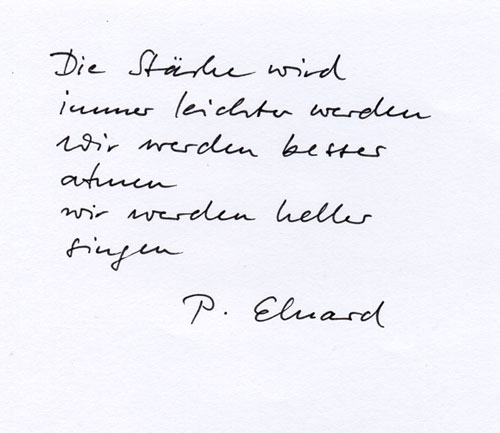 Die Stärke wird
immer leichter werden
Wir werden besser
atmen
wir werden heller
singen
P. Eluard